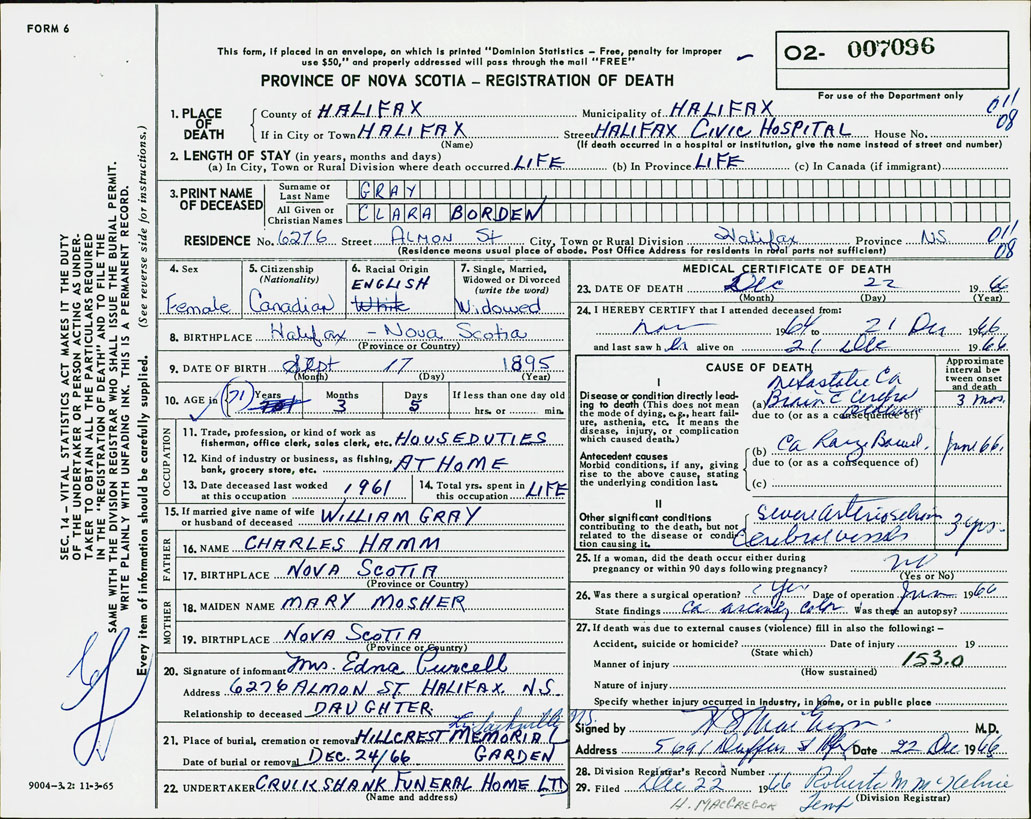 FORM 6
This form, if placed in an envelope, on which is printed "Dominion Statistics – Free, penalty for improper
use $50," and properly addressed will pass through the mail "FREE"
O2- 007096
For use of the Department only
PROVINCE OF NOVA SCOTIA – REGISTRATION OF DEATH
SEC. 14 – VITAL STATISTICS ACT MAKES IT THE DUTY
OF THE UNDERTAKER OR PERSON ACTING AS UNDER-
TAKER TO OBTAIN ALL THE PARTICULARS REQUIRED
IN THE "REGISTRATION OF DEATH" AND TO FILE THE
SAME WITH THE DIVISION REGISTRAR WHO SHALL ISSUE THE BURIAL PERMIT.
WRITE PLAINLY WITH UNFADING INK. THIS IS A PERMANENT RECORD.
Every item of information should be carefully supplied. (See reverse side for instructions.)
1. PLACE OF DEATH
County of HALIFAX Municipality of HALIFAX 011
If in City or Town HALIFAX Street HALIFAX CIVIC HOSPITAL House No. 08
(Name) (If death occurred in a hospital or institution, give the name instead of street and number)
2. LENGTH OF STAY (in years, months and days)
(a) In City, Town or Rural Division where death occurred LIFE (b) In Province LIFE (c) In Canada (if immigrant)
3. PRINT NAME OF DECEASED
Surname or Last Name GRAY
All Given or Christian Names CLARA BORDEN
RESIDENCE No. 6276 Street ALMON ST City, Town or Rural Division Halifax Province N.S. 011
(Residence means usual place of abode. Post Office Address for residents in rural parts not sufficient) 08
4. Sex Female
5. Citizenship (Nationality) Canadian
6. Racial Origin ENGLISH White
7. Single, Married, Widowed or Divorced (write the word) Widowed
8. BIRTHPLACE Halifax – Nova Scotia
(Province or Country)
9. DATE OF BIRTH Sept 17 1895
(Month) (Day) (Year)
10. AGE in (71) Years Months 3 Days 5 If less than one day old
hrs. or min.
OCCUPATION
11. Trade, profession, or kind of work as
fisherman, office clerk, sales clerk, etc. HOUSEDUTIES
12. Kind of industry or business, as fishing,
bank, grocery store, etc. AT HOME
13. Date deceased last worked at this occupation 1961
14. Total yrs. spent in this occupation LIFE
15. If married give name of wife or husband of deceased WILLIAM GRAY
FATHER
16. NAME CHARLES HAMM
17. BIRTHPLACE NOVA SCOTIA
(Province or Country)
MOTHER
18. MAIDEN NAME MARY MOSHER
19. BIRTHPLACE NOVA SCOTIA
(Province or Country)
20. Signature of informant Mrs. Edna Purcell
Address 6276 ALMON ST. HALIFAX N.S.
Relationship to deceased DAUGHTER
21. Place of burial, cremation or removal HILLCREST MEMORIAL
Date of burial or removal DEC. 24/66 GARDEN
22. UNDERTAKER CRUIKSHANK FUNERAL HOME LTD
(Name and address)
9004-3.2: 11-3-65
MEDICAL CERTIFICATE OF DEATH
23. DATE OF DEATH Dec 22 1966
(Month) (Day) (Year)
24. I HEREBY CERTIFY that I attended deceased from:
Nov 1964 to 21 Dec 1966
and last saw h er alive on 21 Dec 1966
CAUSE OF DEATH
Approximate interval between onset and death
I
Disease or condition directly leading to death (This does not mean the mode of dying, e.g., heart failure, asthenia, etc. It means the disease, injury, or complication which caused death.)
Metastatic Ca
(a) Brain 3 mos.
due to (or as a consequence of)
Antecedent causes
Morbid conditions, if any, giving rise to the above cause, stating the underlying condition last.
(b) Ca Large Bowel June 66
due to (or as a consequence of)
(c)
II
Other significant conditions contributing to the death, but not related to the disease or condition causing it.
Severe Arteriosclerosis 3 yrs.
Cerebral vessels
25. If a woman, did the death occur either during
pregnancy or within 90 days following pregnancy? no
(Yes or No)
26. Was there a surgical operation? Yes Date of operation June 1966
State findings Ca ascending colon Was there an autopsy?
27. If death was due to external causes (violence) fill in also the following: –
Accident, suicide or homicide? Date of injury 19
(State which)
Manner of injury 153.0
(How sustained)
Nature of injury
Specify whether injury occurred in industry, in home, or in public place
Signed by M.D.
Address 5691 Duffus St Hfx Date 22 Dec 1966
28. Division Registrar's Record Number
29. Filed Dec 22 1966 Roberta M
(Division Registrar)
H. MACGREGOR